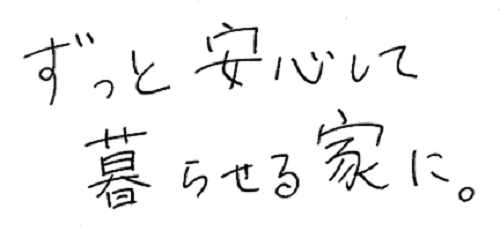 ずっと安心して
暮らせる家に。